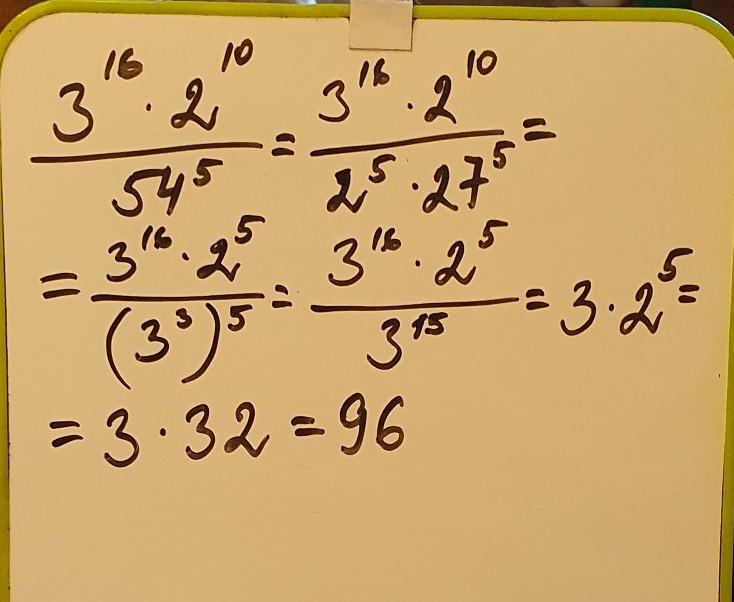 \frac{3^{16} \cdot 2^{10}}{54^5} = \frac{3^{16} \cdot 2^{10}}{2^5 \cdot 27^5} =
= \frac{3^{16} \cdot 2^5}{(3^3)^5} = \frac{3^{16} \cdot 2^5}{3^{15}} = 3 \cdot 2^5 =
= 3 \cdot 32 = 96